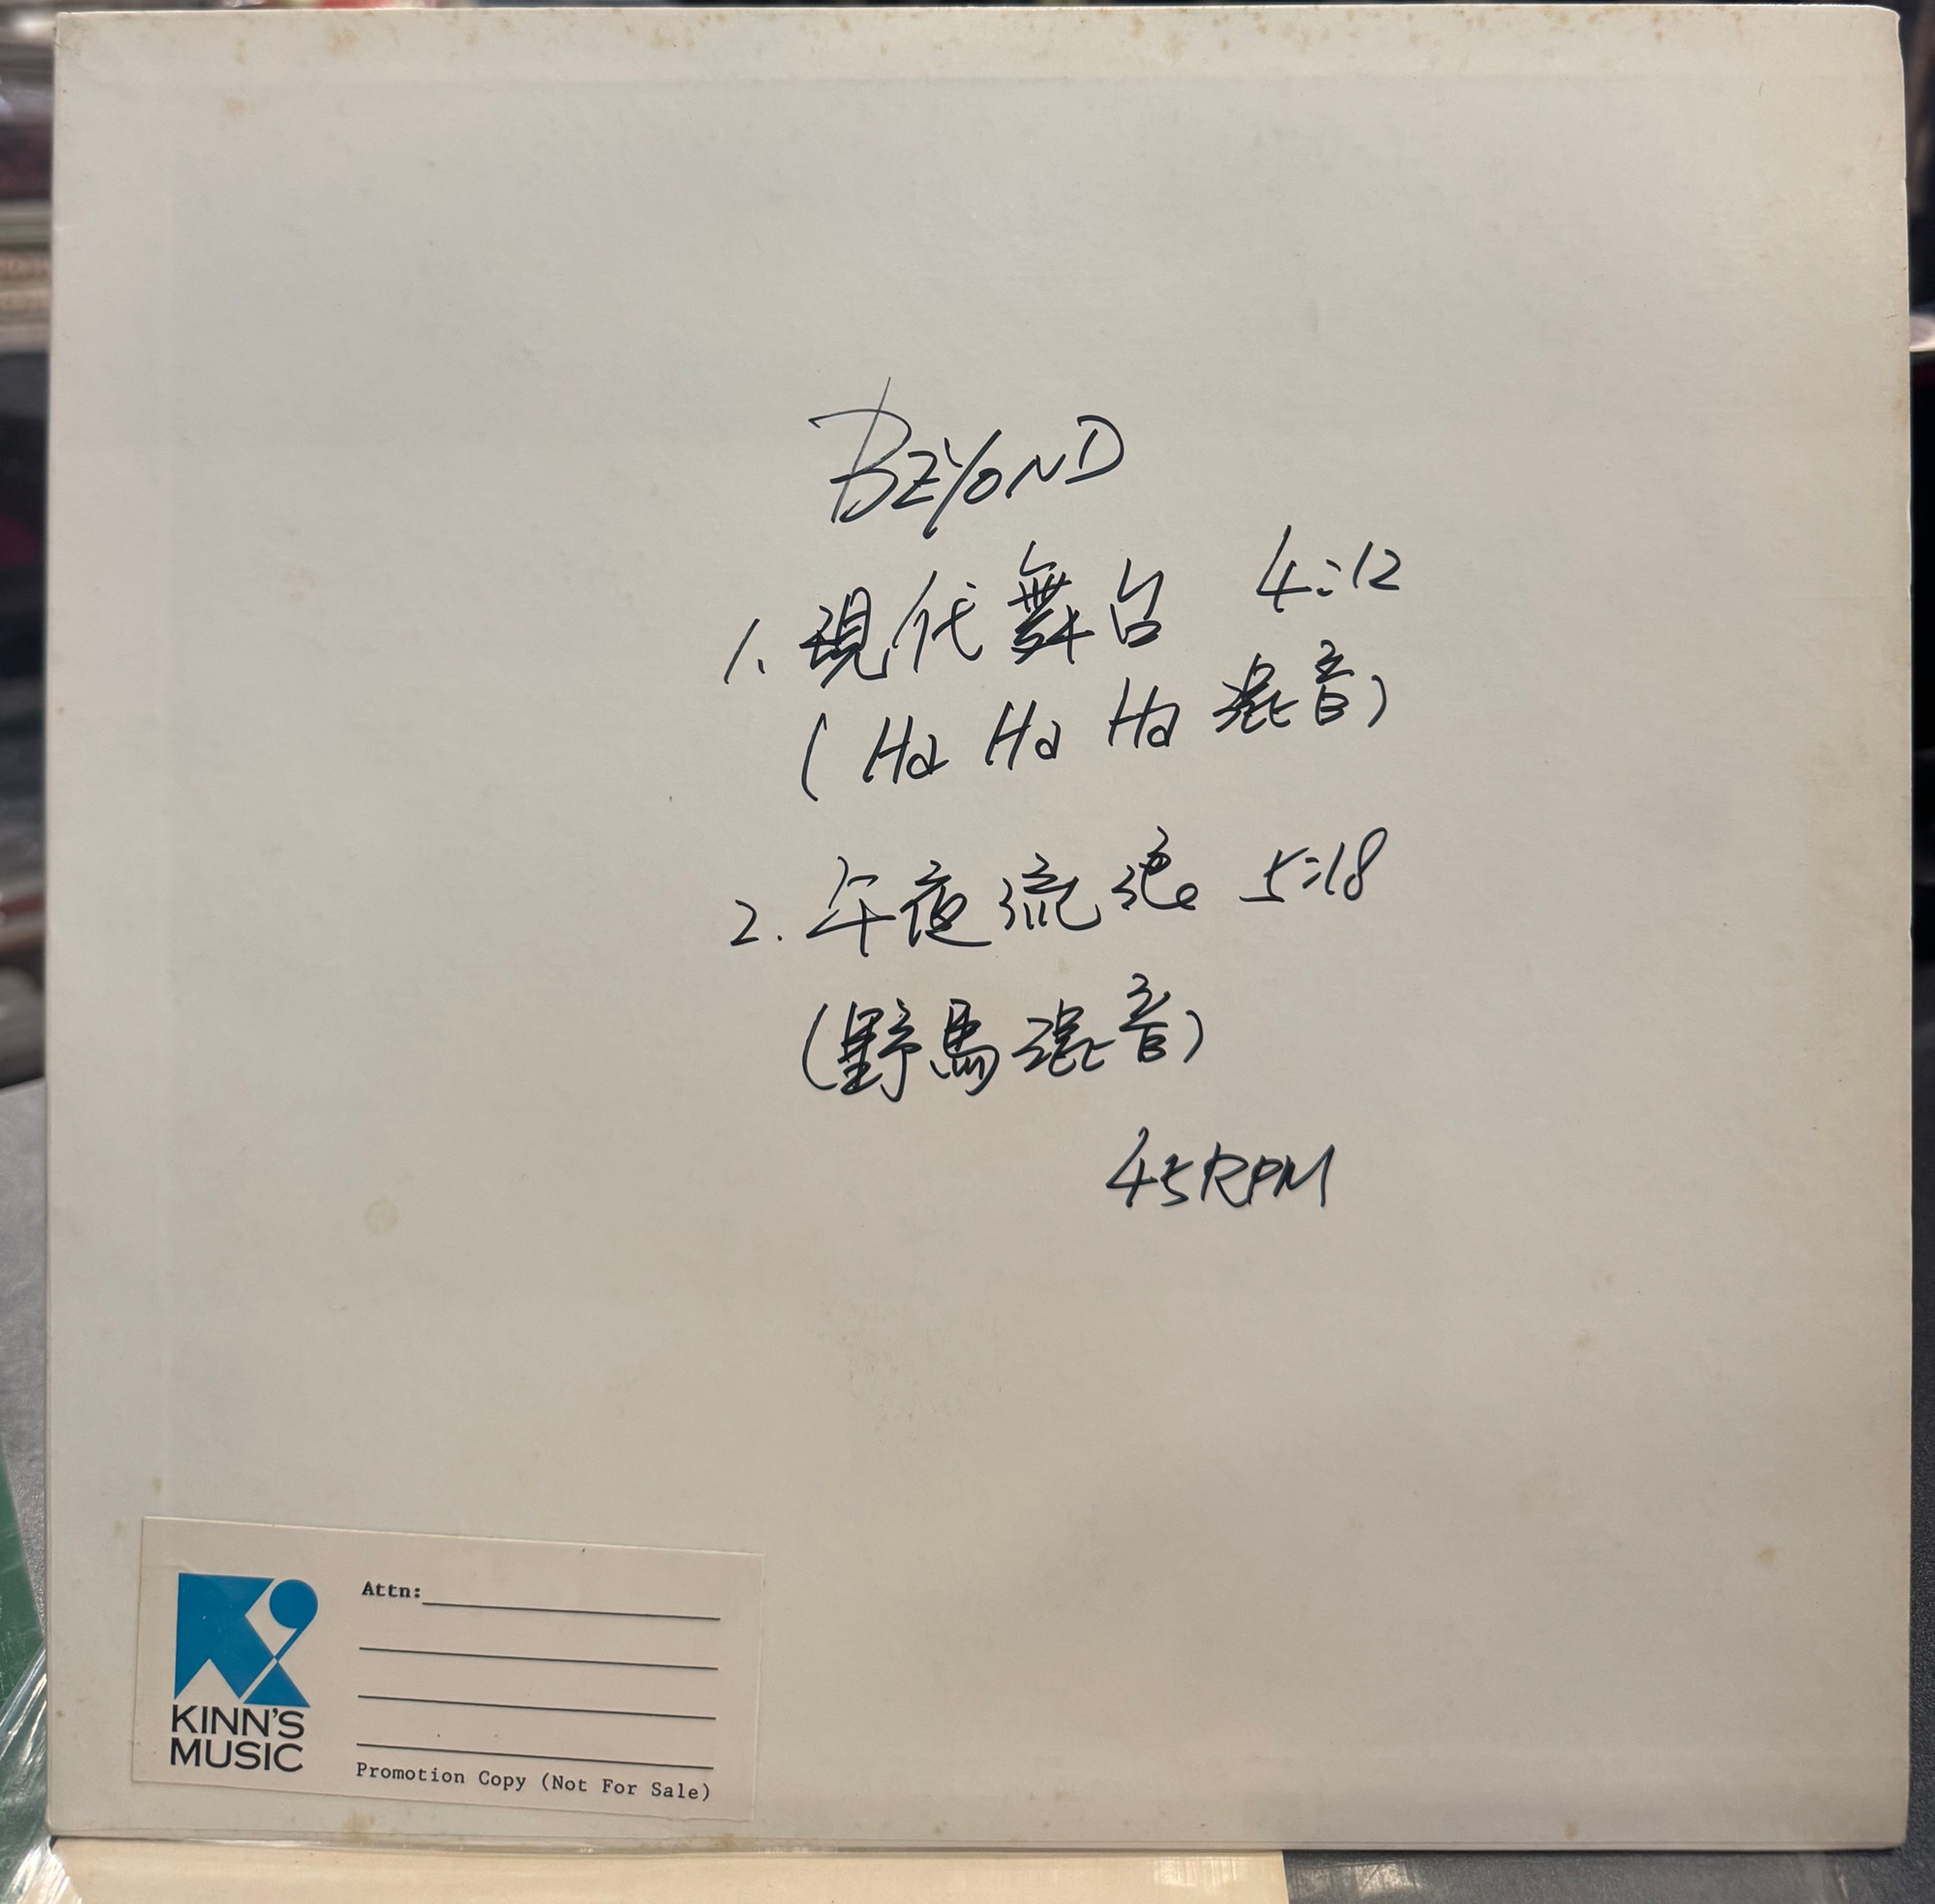 BEYOND
1. 現代舞台 4:12
(Ha Ha Ha 混音)
2. 午夜流浪 5:18
(野馬混音)
45RPM
KINN'S
MUSIC
Attn:
Promotion Copy (Not For Sale)